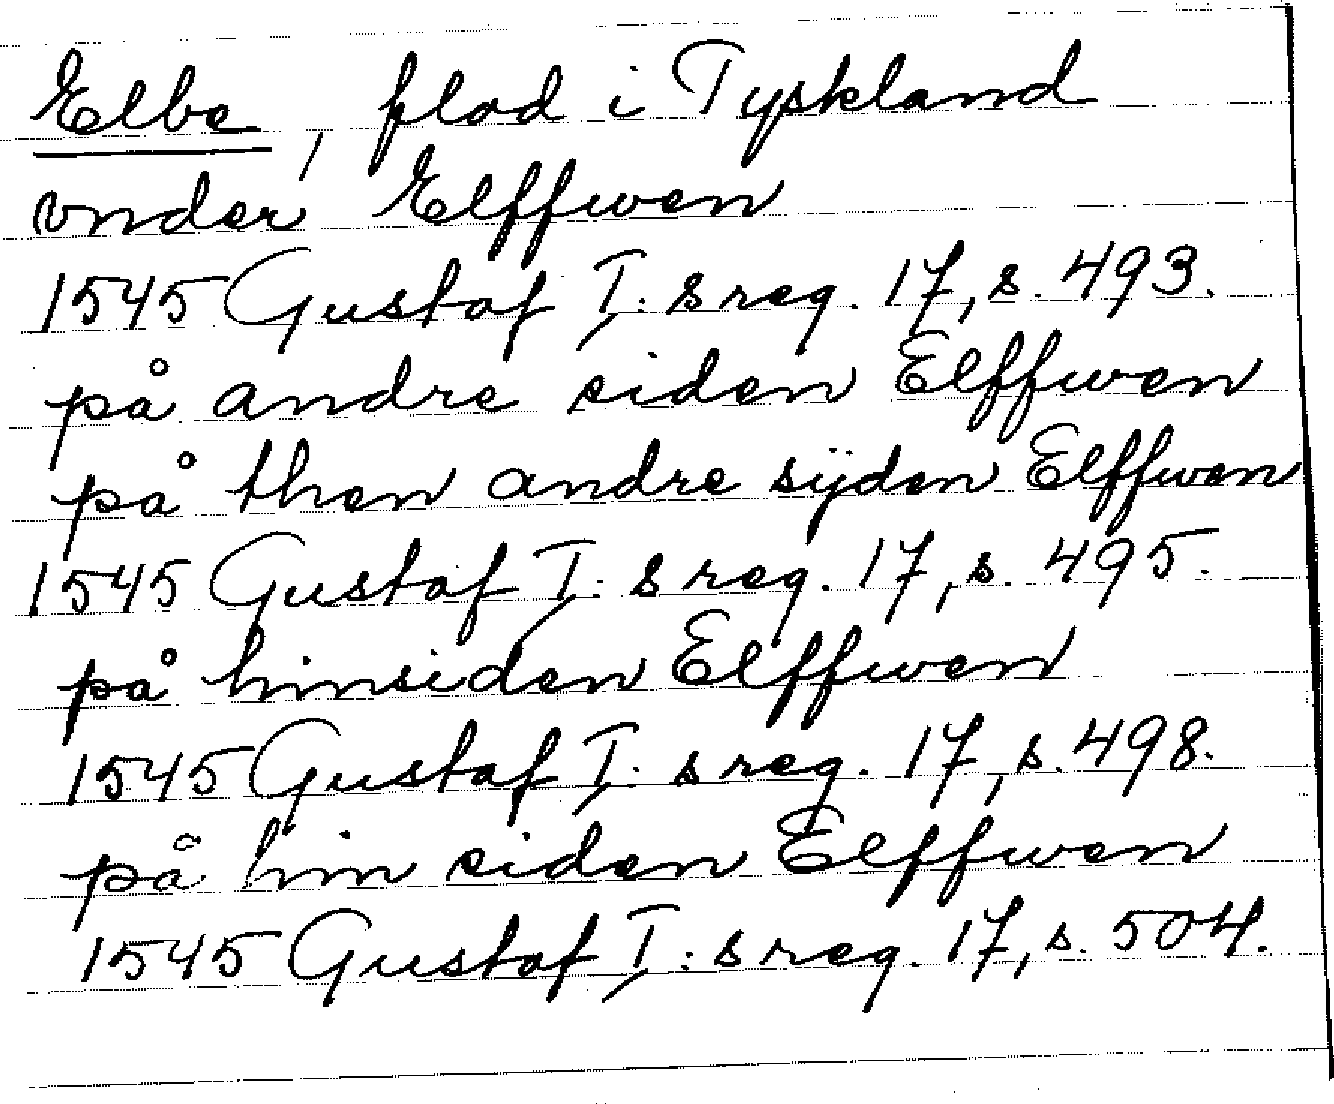 Elbe, flod i Tyskland
vnder Elffwen
1545 Gustaf I: s reg. 17, s. 493.
på andre siden Elffwen
på then andre sÿden Elffwen
1545 Gustaf I: s reg. 17, s. 495.
på hinsiden Elffwen
1545 Gustaf I: s reg. 17, s. 498.
på hin siden Elffwen
1545 Gustaf I: s reg. 17, s. 504.